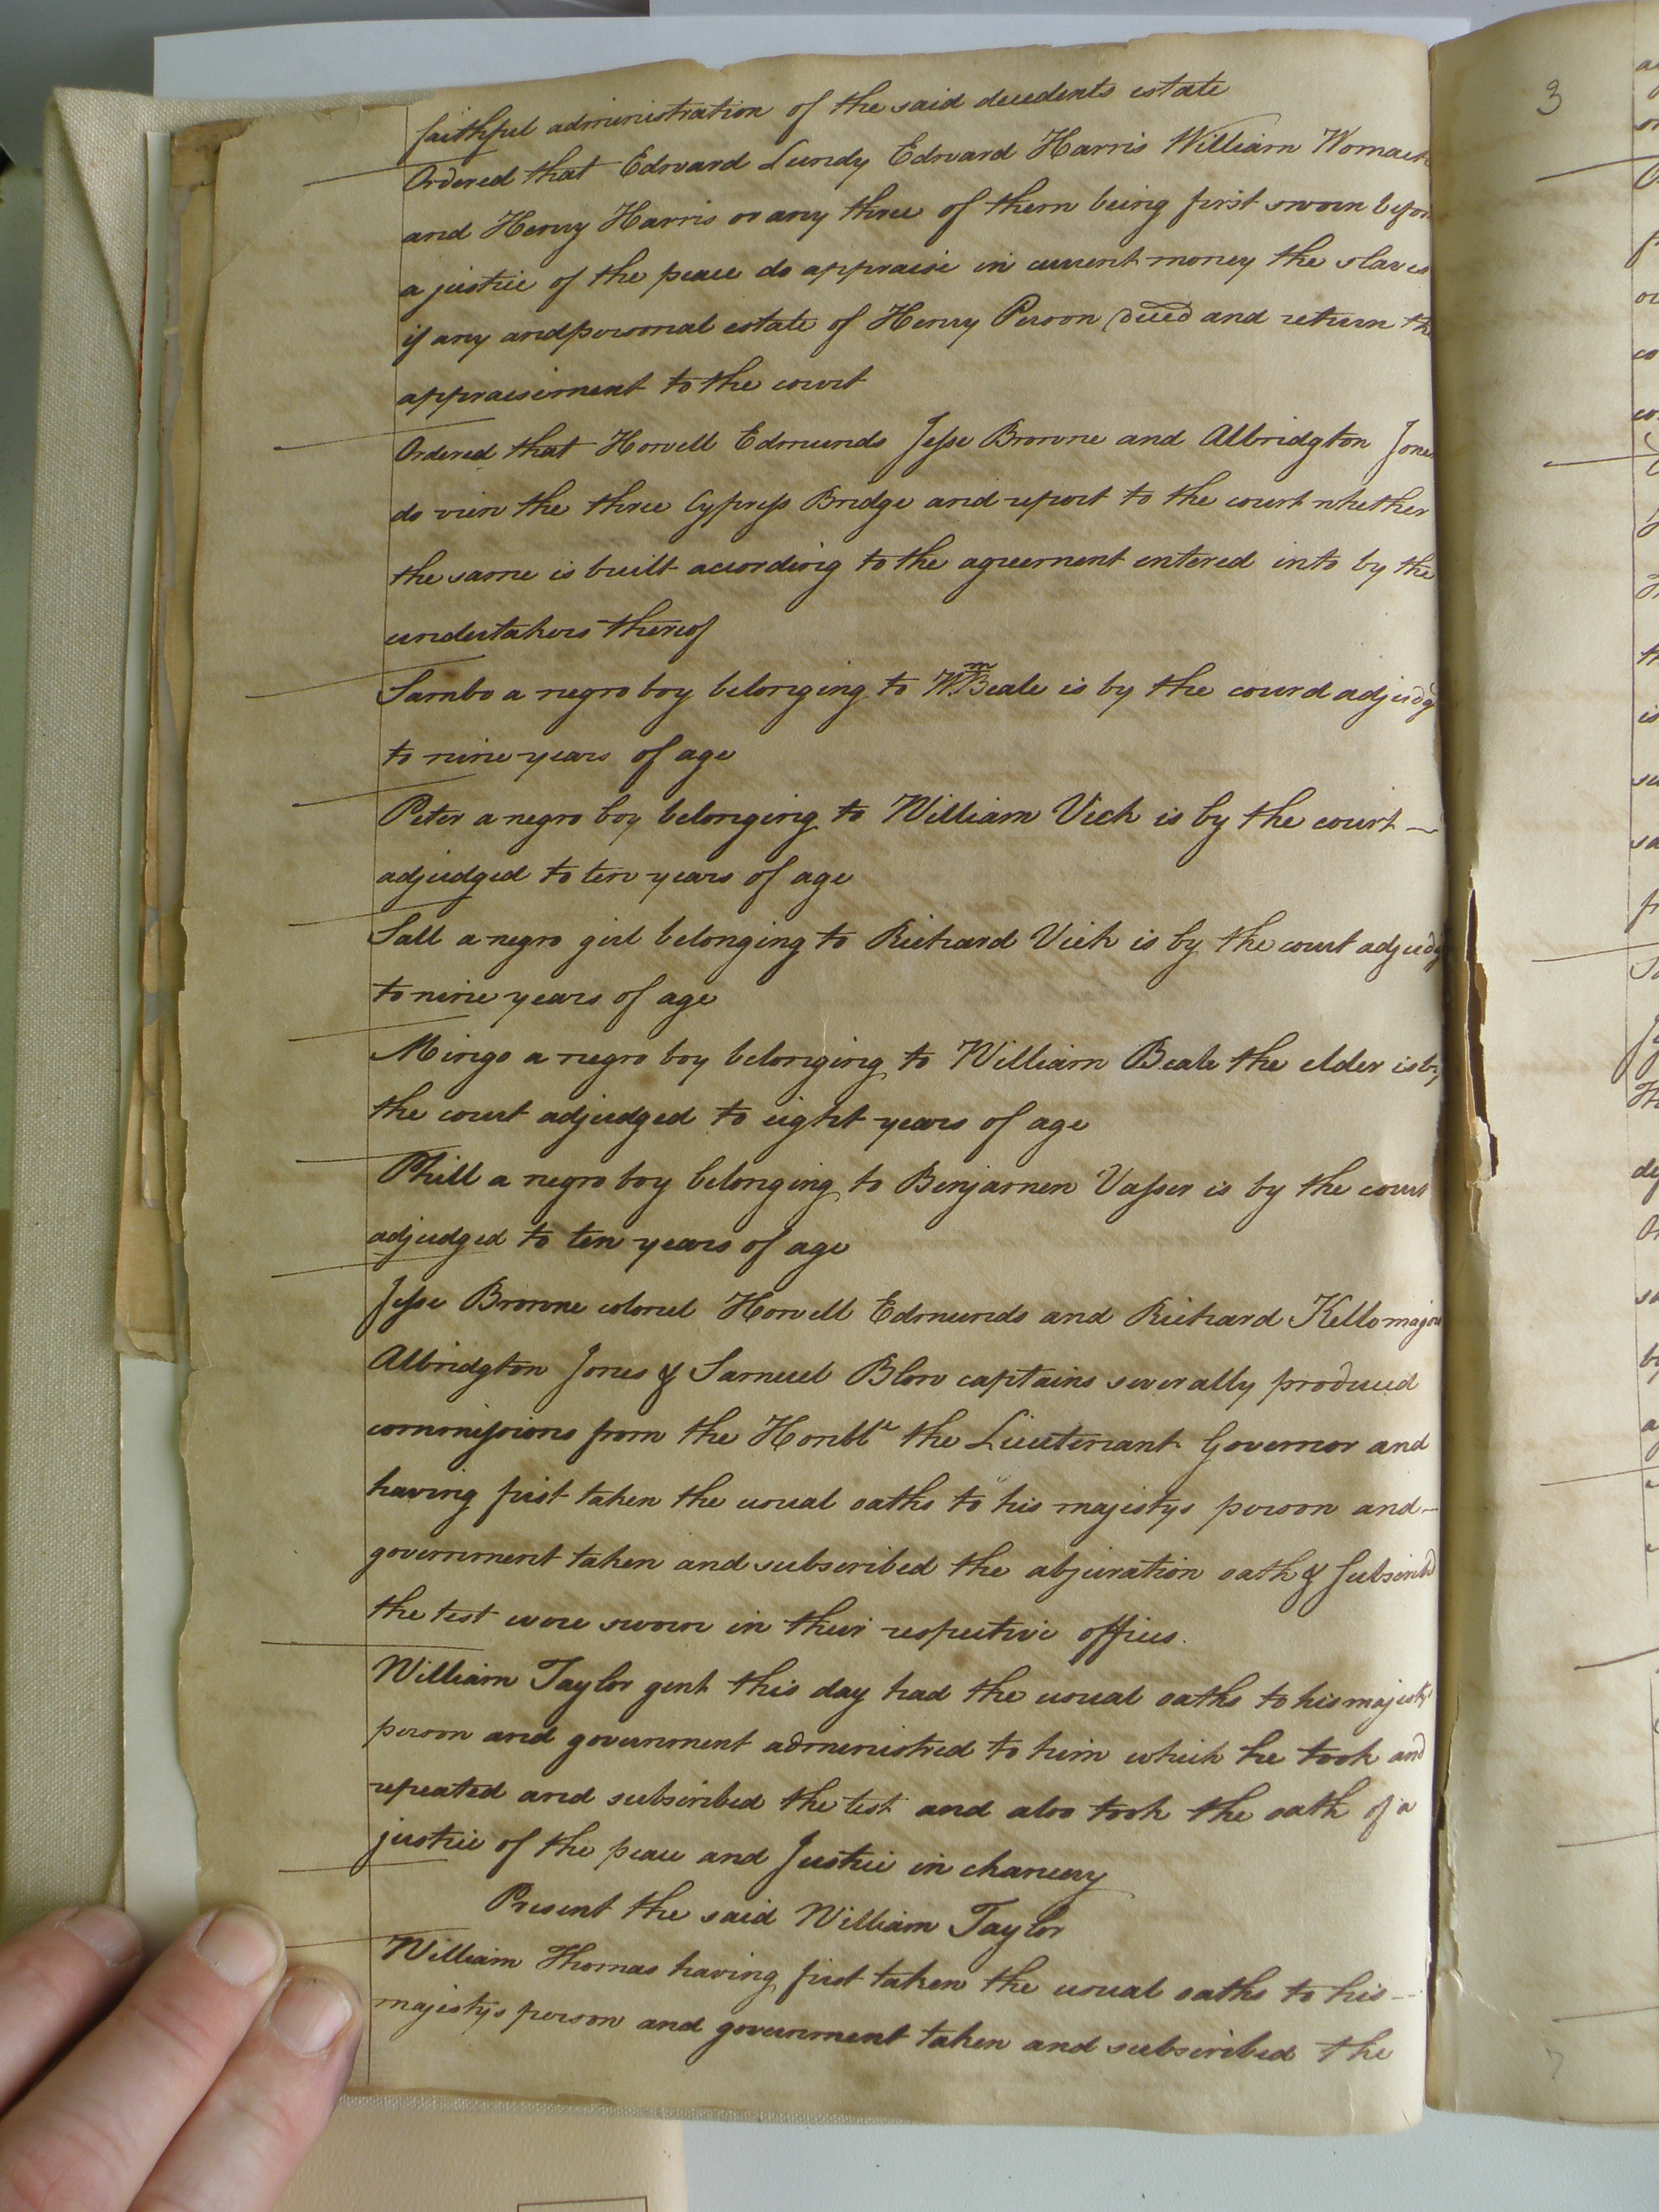 faithful administration of the said decedents estate
Ordered that Edward Lundy Edward Harris William Womack
and Henry Harris or any three of them being first sworn before
a justice of the peace do appraise in current money the slaves
if any and personal estate of Henry Person deced and return the
appraisement to the court
Ordered that Howell Edmunds Jesse Browne and Albridgton Jones
do view the three Cypress Bridge and report to the court whether
the same is built according to the agreement entered into by the
undertakers thereof
Sambo a negro boy belonging to Wm Beale is by the courd adjudg
to nine years of age
Peter a negro boy belonging to William Vick is by the court
adjudged to ten years of age
Sall a negro girl belonging to Richard Vick is by the court adjudg
to nine years of age
Mingo a negro boy belonging to William Beale the elder is by
the court adjudged to eight years of age
Phill a negro boy belonging to Benjamen Vasser is by the court
adjudged to ten years of age
Jesse Browne colonel Howell Edmunds and Richard Kello majors
Albridgton Jones & Samuel Blow captains severally produced
commissions from the Honble the Lieutenant Governor and
having first taken the usual oaths to his majestys person and
government taken and subscribed the abjuration oath & Subscribd
the test were sworn in their respective offices.
William Taylor gent this day had the usual oaths to his majestys
person and government administred to him which he took and
repeated and subscribed the test and also took the oath of a
justice of the peace and Justice in chancery
Present the said William Taylor
William Thomas having first taken the usual oaths to his
majestys person and government taken and subscribed the
3